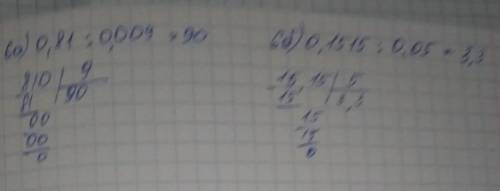 6а) 0,81 : 0,009 = 90
810 | 9
81 | 90
00
00
0
6б) 0,1515 : 0,05 = 3,3
15,15 | 5
15 | 3,3
15
15
0